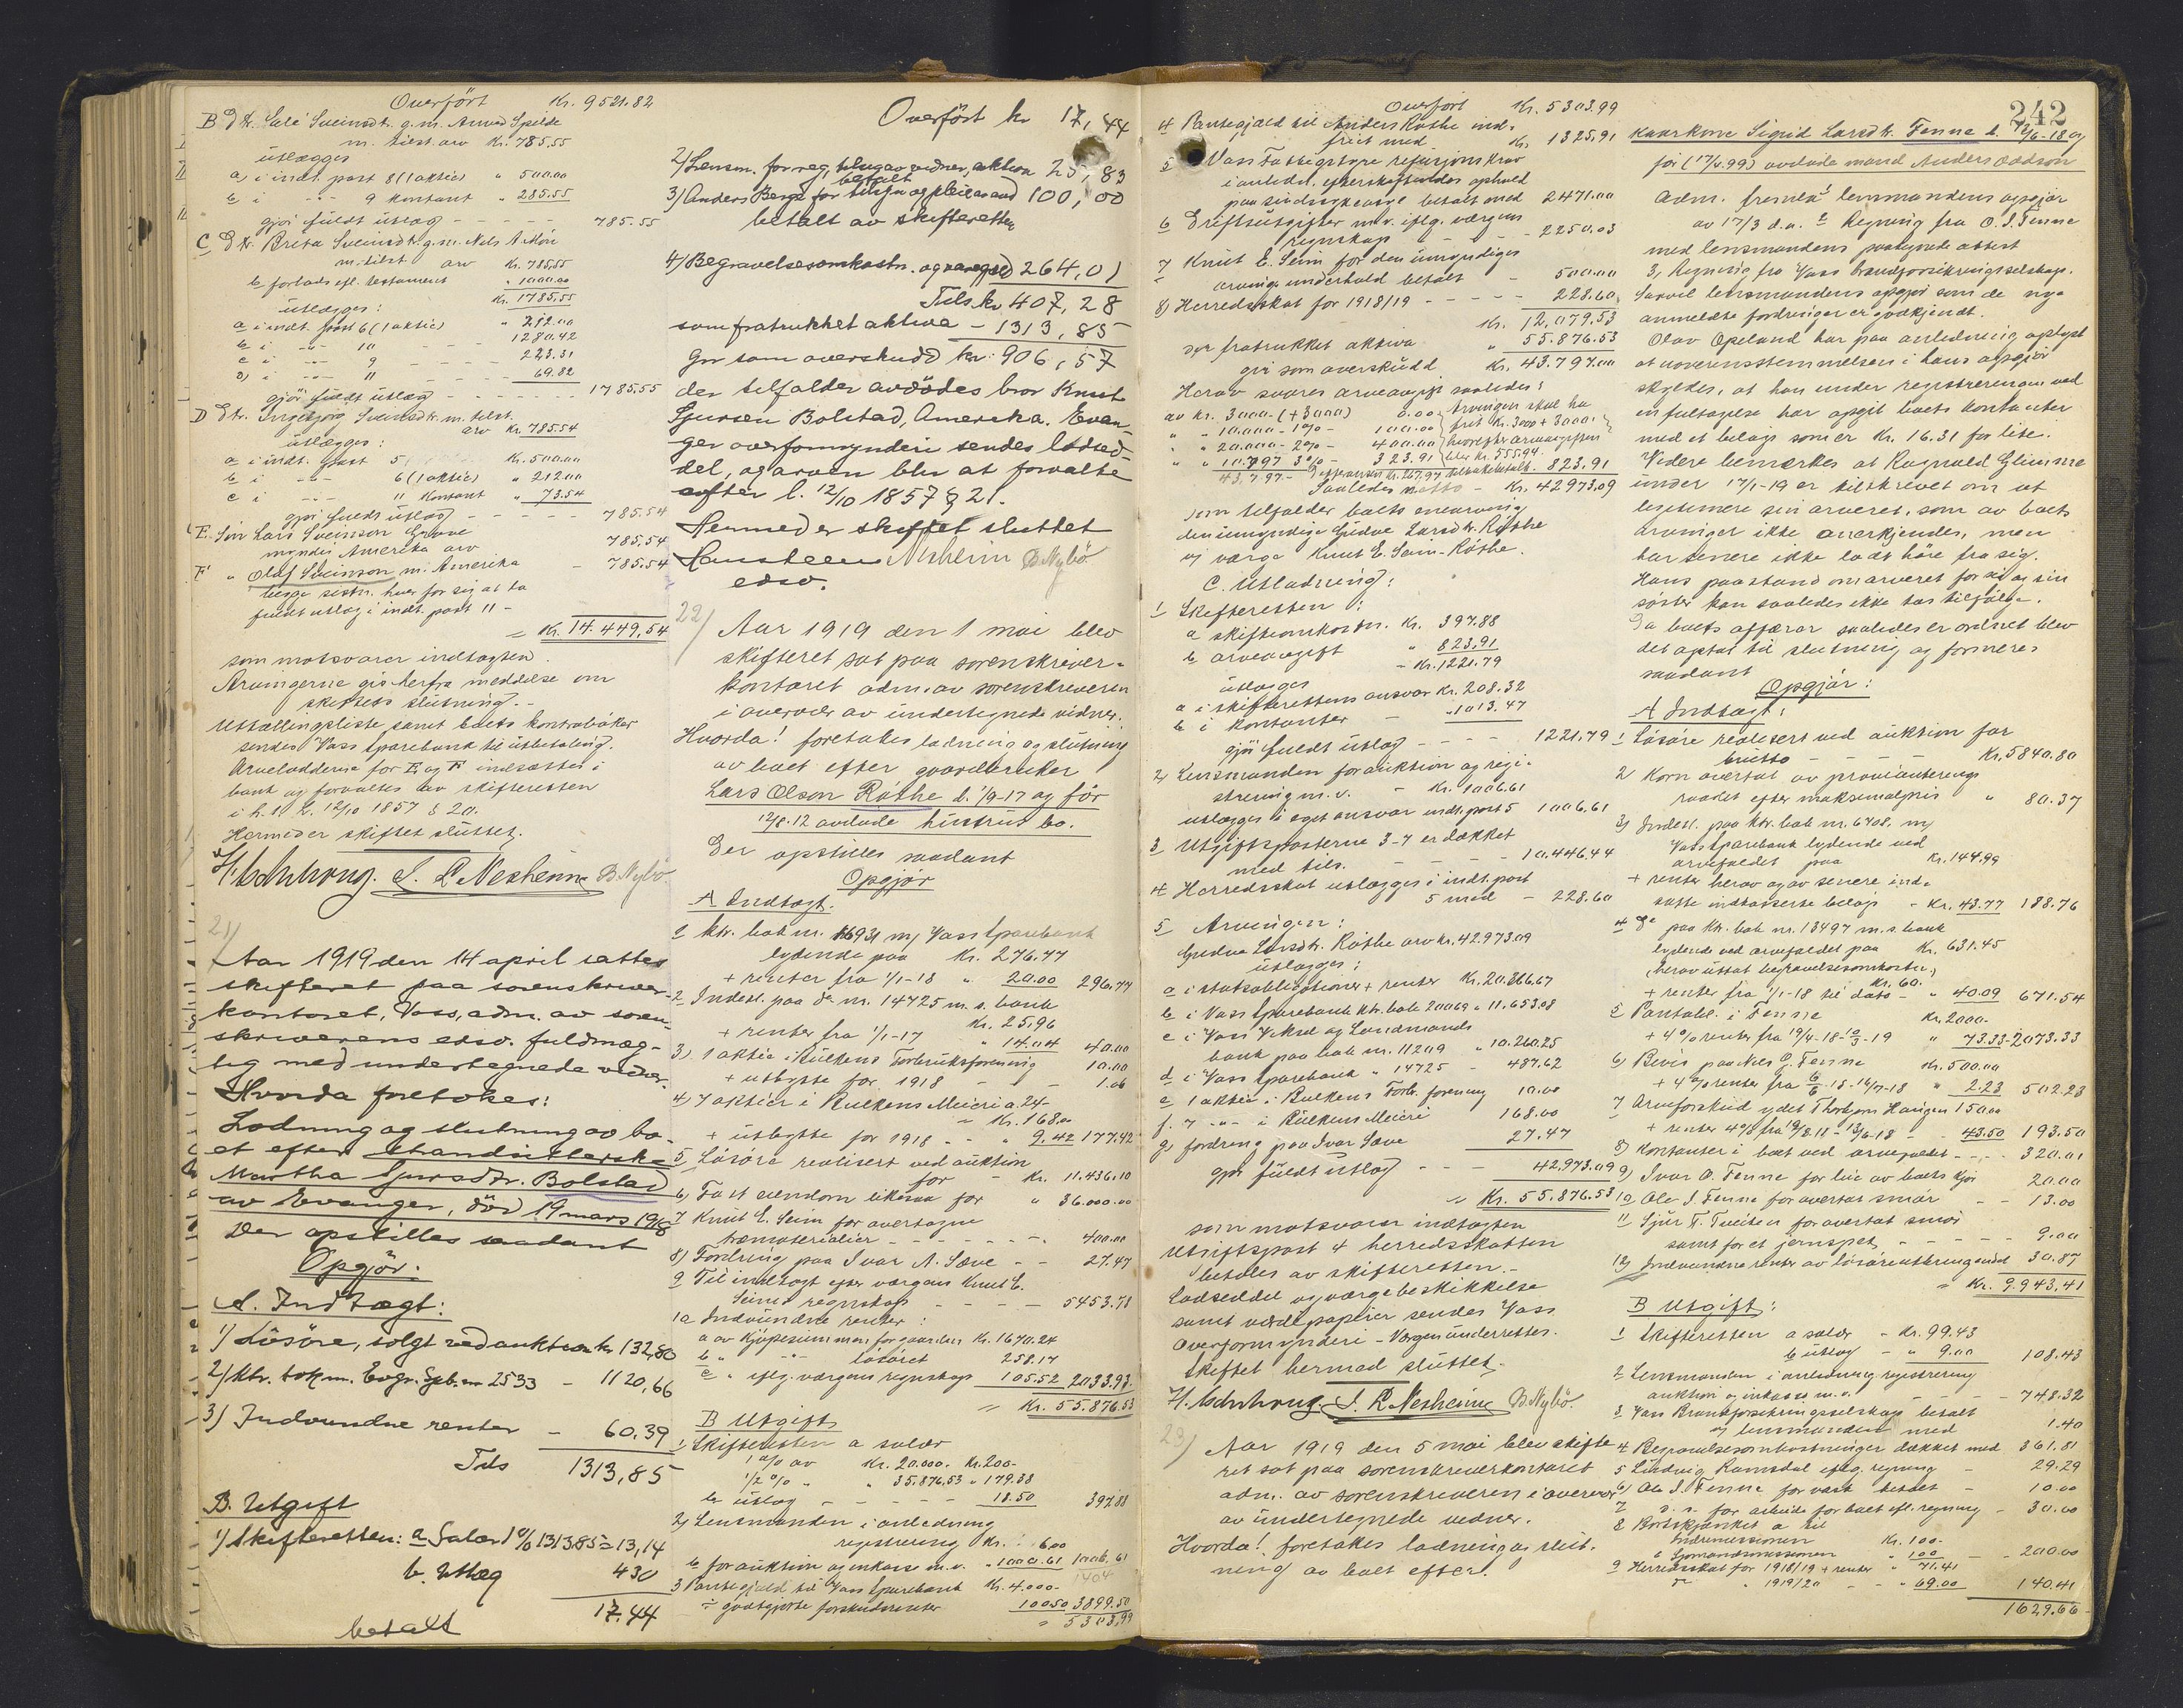 Overført Kr. 9521.82
B Dtr. Salé Sveinsdtr. g.m. Amund Spelde
m. tilst. arv Kr. 785,55
utlægges
a, i indt. post 8 (1 aktie) " 500.00
b i -"- 9 kontant " 285.55
gjør fuldt utlæg - - - - 785.55
C Dtr. Brita Sveinsdtr. g.m. Nils A. Móe
m. tilst arv Kr. 785,55
b, forlods efl. testament " 1000.00
Kr. 1785,55
utlægges:
a i indt. post 6 (1 aktie) " 212.00
b i -"- 10 - - 1280.42
c i -"- 9 - - 223.31
d) i -"- 11 - - 69.82
gjör fuldt utlæg - - - 1785.55
D Dtr. Ingebjørg Sveinsdtr. m. tilst.
arv Kr. 785.54
utlægges:
a i indt. post 5 Kr. 500.00
b i -"- 6 (1 aktie) " 212.00
c i -"- 11 kontant " 73.54
gjør fuldt utlæg - - - - 785.54
E. Søn Lars Sveinson Grove
myndig Amerika arv 785,54
F " Olaf Sveinson m. Amerika - 785.54
begge sistn. hver for sig at ta
fuldt utlæg i indt. post 11 -
= Kr. 14.449,54
som motsvarer indtægten.
Arvingerne gis herfra meddelse om
skiftets slutning. -
Uttællingsliste samt boets kontrabøker
sendes Voss Sparebank til utbetaling.
Arvelodderne for E og F indsættes i
bank og forvaltes av skifteretten
i h. t. L. 12/10 1857 § 20.
Hermed er skiftet sluttet.
S. R. Nesheim B. Nybö.
21)
Aar 1919 den 14 april sattes
skifteret paa sorenskriver-
kontoret, Voss, adm. av soren-
skriverens edsv. fuldmæg-
tig med undertegnede vidner.
Hvorda foretokes:
Lodning og slutning av bo-
et efter
Martha Sjursdtr. Bolstad
av Evanger, död 19 mars 1918
Der opstilles saadant
Opgjör:
A. Indtægt:
1) Lösöre, solgt ved auktion kr 132,80
2) Ktr. bok m. Evgr. Spb. nr 2533 - 1120,66
3) Indvundne renter - 60.39
Tils 1313,85
B. Utgift
1) Skifteretten: a Salær 1% 1313,85 = 13,14
b. Utlæg 430
17.44
betalt
Overført kr 17,44
2) Lensm. for reg, tilsyn av vidner, auktion 25,83
betalt
3) Anders Berge for tilsyn og pleie av avd 100,00
betalt av skifteretten
4) Begravelsesomkostn. og varegjeld 264,01
Tils. kr 407,28
som fratrukket aktiva - 1313,85
gir som overskudd kr: 906,57
der tilfalder avdödes bror Knut
Sjursen Bolstad, Amerika. Evan-
ger overformynderi sendes lodsed-
del, og arven blir at forvalte
efter l. 12/10 1857 § 21.
Hermed er skiftet sluttet
Hansteen Nesheim B. Nybö
edsv.
22/
Aar 1919 den 1 mai blev
skifteret sat paa sorenskriver-
kontoret adm. av sorenskriveren
i overvær av undertegnede vidner.
Hvorda! foretokes lodning og slutning
av boet efter gaardbruker
Lars Olson Röthe d. 1/9-17 og för
12/8.12 avdøde hustrus bo.
Der opstilles saadant
Opgjør
A Indtægt.
1 Ktr. bok nr. 16931 m/ Voss Sparebank
lydende paa Kr. 276.77
+ renter fra 1/1-18 " 20.00 296,77
2 Indest. paa do nr. 14725 m. s. bank
Kr. 25,96
+ renter fra 1/1-17 " 14.04 40.00
3) 1 aktie i Bulkens Forbruksforening 10.00
+ utbytte for 1918 - - 1.06
4) 7 aktier i Bulkens Meieri a 24-
= Kr. 168.00
+ utbytte for 1918 - - " 9.42 177.42
5 Lösöre realisert ved auktion
for - Kr. 11.436.10
6) Fast eiendom likesaa for " 36.000.00
7 Knut E. Seim for overtagne
træmaterialier - - - - 400.00
8) Fordring paa Ivar A. Sæve - - 27.47
9 Til indtægt efter værgens Knut E.
Seims regnskap - - - - 5453.78
10 Indvundne renter:
a av kjöpesummen for gaarden Kr. 1670.24
b " -"- lösöret 258.17
c " iflg. værgens regnskap 105.52 2033.93
= Kr. 55.876.53
B Utgift
1 Skifteretten a salær
1% av Kr. 20.000. Kr. 200-
1/2% " " 35.876,53 " 179.38
b utlæg - - - - 18.50 397.88
2) Lensmanden i anledning
registrering Kr. 6.00
b for auktion og inkasso m.v. " 1000.61 1006.61
3 Pantegjæld til Voss Sparebank Kr. 4.000-
÷ godtgjorte forskudsrenter 100.50 3899.50
= 5303,99
Overført Kr. 5303.99
4 Pantegjæld til Anders Rothe ind-
friet med Kr. 1325,91
5 Voss Fattigstyre refusjonskrav
i anledn. efterskaftendes ophold
paa sindssykeasyl betalt med 2471.00
6 Driftsutgifter m.v. iflg. værgens
regnskap - - - - 2250.03
7 Knut E. Seim for den umyndiges
arvings underhold betalt - 500.00
8) Herredsskat for 1918/19 - - - - 228.60
Kr. 12,079,53
der fratrukket aktiva " 55.876.53
gir som overskudd Kr. 43.797.00
Herav svares arveavgift saaledes:
av kr. 3000- (+3000) 0.00 Arvingen skal ha
" " 10.000 - 1% - 100.00 frit Kr. 3000 + 3000:
" " 20.000 - 2% - 400.00 hvorefter arveavgiften
" " 10797 3% - 323.91 blir Kr. 555,94.
43,797.- Differansen Kr. 267,97 tilbakebetalt. 823,91
Saaledes netto - Kr. 42973,09
som tilfalder boets enearving
den umyndige Gudve Larsdtr. Röthe
v/ værge Knut E. Seim-Röthe.
C. Utlodning:
1 Skifteretten:
a skifteomkostn. Kr. 397.88
b arveavgift " 823,91
- Kr. 1221.79
utlægges
a i skifterettens ansvar Kr. 208.32
b i kontanter - " 1013.47
gjör fuldt utlæg - - - - 1221.79
2) Lensmanden for auktion og regi-
strering m.v. - Kr. 1006.61
utlægges i eget ansvar indt. post 5 1006,61
3 Utgiftsposterne 3-7 er dækket
med tils. - - - - 10.446.44
4 Herredsskat utlægges i indt. post
5 med - 228.60
5 Arvingen:
Gudve Larsdtr. Röthe arv kr. 42.973.09
utlægges:
a i statsobligationer + renter Kr. 20.366,67
b i Voss Sparebank ktr. bok 20069 " 11.653.08
c i Voss Veksel og Landmands
bank paa bok nr. 11209 " 10.260.25
d i Voss Sparebank " 14725 - 487.62
e 1 aktie i Bulkens Forb. forening 10.00
f. 7 -"- i Bulkens Meieri 168.00
g, fordring paa Ivar Sæve 27.47
gjör fuldt utlæg - - - 42,973.09
= Kr. 55.876.53
som motsvarer indtægten
Utgiftspost 4 herredsskatten
betales av skifteretten. -
Lodseddel og værgebeskikkelse
samt værdipapirer sendes Voss
Overformynderi - Værgen underrettes.
Skiftet hermed sluttet.
S. R. Nesheim B. Nybö.
23)
Aar 1919 den 5 mai blev skifte-
ret sat paa sorenskriverkontoret
adm. av sorenskriveren i overvær
av undertegnede vidner.
Hvorda! foretokes lodning og slut-
ning av boet efter!
242
kaarkone Sigrid Larsdtr. Fenne d. 12/6-18 og
før (17/4.99) avdøde mand Anders Oddson
Adm. fremla 1 lensmandens opgjør
av 17/3 d.a. 2 Regning fra O. S. Fenne
med lensmandens paategnede attest
3, Regning fra Voss brandforsikringsselskap.
Saavel lensmandens opgjør som de nye
anmeldte fordringer er godkjendt.
Olav Opeland har paa anledning oplyst
at uoverensstemmelsen i hans opgjör
skyldes, at han under registreringen ved
en feiltagelse har opgit boets kontanter
med et beløp som er Kr. 16.31 for lite.
Videre bemerkes at Ragnvald Glimme
under 17/1-19 er tilskrevet om at
legitimere sin arveret, som av boets
arvinger ikke anerkjendes, men
har senere ikke latt høre fra sig.
Hans paastand om arveret for sig og sin
søster kan saaledes ikke tas tilfølge.
Da boets affærer saaledes er ordnet blev
det optat til slutning og formeres
saadant
Opgjör:
A Indtægt:
1 Lösöre realisert ved auktion for
brutto - - - - Kr. 5840.80
2 Korn overtat av provianterings
raadet efter maksimalpris " 80.37
3) Indest. paa ktr. bok nr. 6708. m/
Voss Sparebank lydende ved
arvefaldet paa Kr. 144.99
+ renter herav og av senere ind-
satte indkasserte beløp - Kr. 43.77 188.76
4 Do paa Ktr. bok nr. 13497 m. s. bank
lydende ved arvefaldet paa Kr. 631.45
(herav uttat begravelsesomkostn.,
Kr. 60.
+ renter fra 1/1-18 til dato - " 40.09 671.54
5 Pantobl. i Fenne Kr. 2000-
+ 4% renter fra 19/4-18-10/3-19 " 73.33 2073.33
6) Bevis paa Nils O. Fenne Kr. 500.00
+ 4% renter fra 6/6.18-16/7-18 " 2.23 502.23
7 Arveforskud ydet Thorbjørn Haugen 150.00
+ renter 4% fra 19/8.11 - 13/6-18 - 43.50 193.50
8) Kontanter i boet ved arvefaldet - - 320.01
9) Ivar O. Fenne for leie av boets kjør 20.00
10, Ole S Fenne for overtat smör - - 13.00
11 Sjur T. Tveiten for overtat smör
samt for et jernspet, - - - - 9.00
12) Indvundne renter av lösöreauktionen 30.87
= Kr. 9.943,41
B Utgift:
1 Skifteretten a salær - Kr. 99.43
b utlæg - " 9.00 108.43
2 Lensmanden i anledning registrering
auktion og inkasso m.v. - - - 748.32
3 Voss Brandforsikringsselskap betalt
av lensmanden med 1.40
4 Begravelsesomkostninger dækket med 361.81
5 Ludvig Ramsdal iflg. regning - 29.29
6) Ole S. Fenne for vask betalt - 10.00
7 d. s. for arbeide for boet efl. regning - 30.00
8 Bortskjænket a til
Indremissionen Kr. 100-
b Sjømandsmissionen " 100 - - 200.00
9 Herredsskat for 1918/19 + renter " 71.41
" 1919/20 - - " 69.00 140.41
1629.66